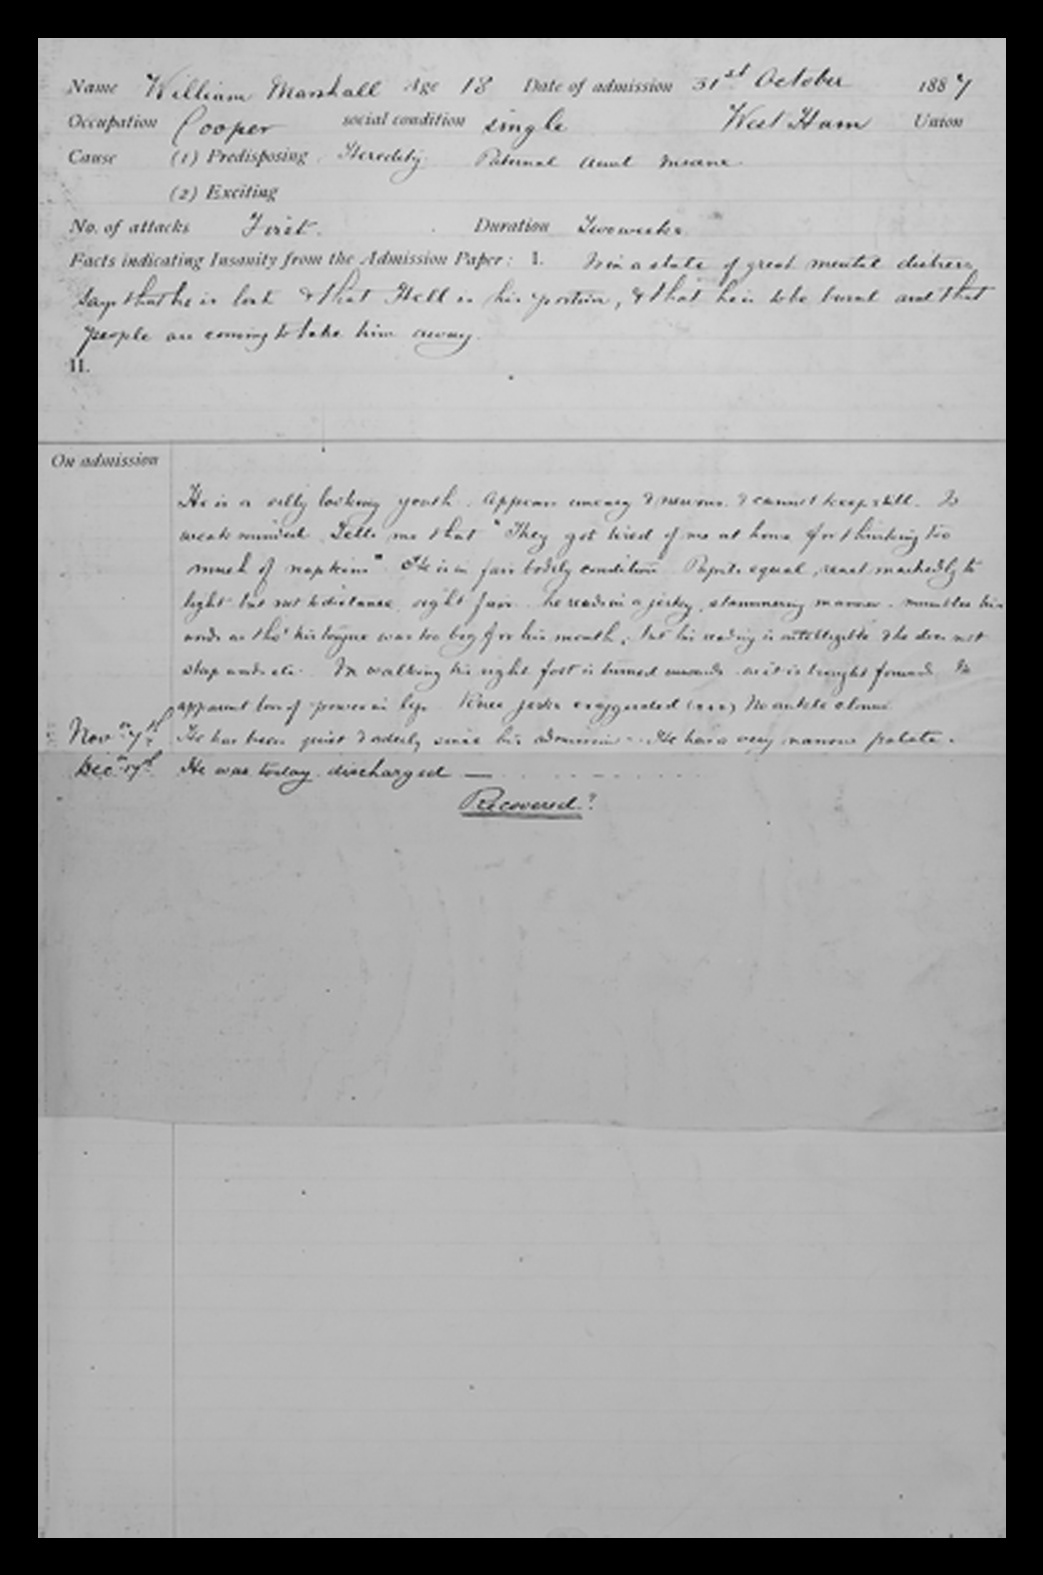 Name William Marshall Age 18 Date of admission 31st October 1887
Occupation Cooper social condition single West Ham Union
Cause (1) Predisposing Heredity Paternal aunt insane
(2) Exciting
No. of attacks First. Duration Two weeks
Facts indicating Insanity from the Admission Paper: I. Is in a state of great mental distress
says that he is lost & that Hell is his portion, & that he is to be burnt and that
people are coming to take him away.
II.
On admission
He is a silly looking youth. Appears uneasy & nervous. & cannot keep still. Is
weak minded. Tells me that "They got tired of me at home for thinking too
much of napkins" He is in fair bodily condition Pupils equal, react markedly to
light but not to distance, sight fair. he reads in a jerky, stammering manner. mumbles his
words as tho' his tongue was too big for his mouth, but his reading is intelligible & he does not
slap words etc. In walking his right foot is turned inwards as it is brought forward. No
apparent loss of power in legs Knee jerks exaggerated No ankle clonus
Nov. 7th He has been quiet & orderly since his admission. He has a very narrow palate.
Dec. 17th He was today discharged —
Recovered.?